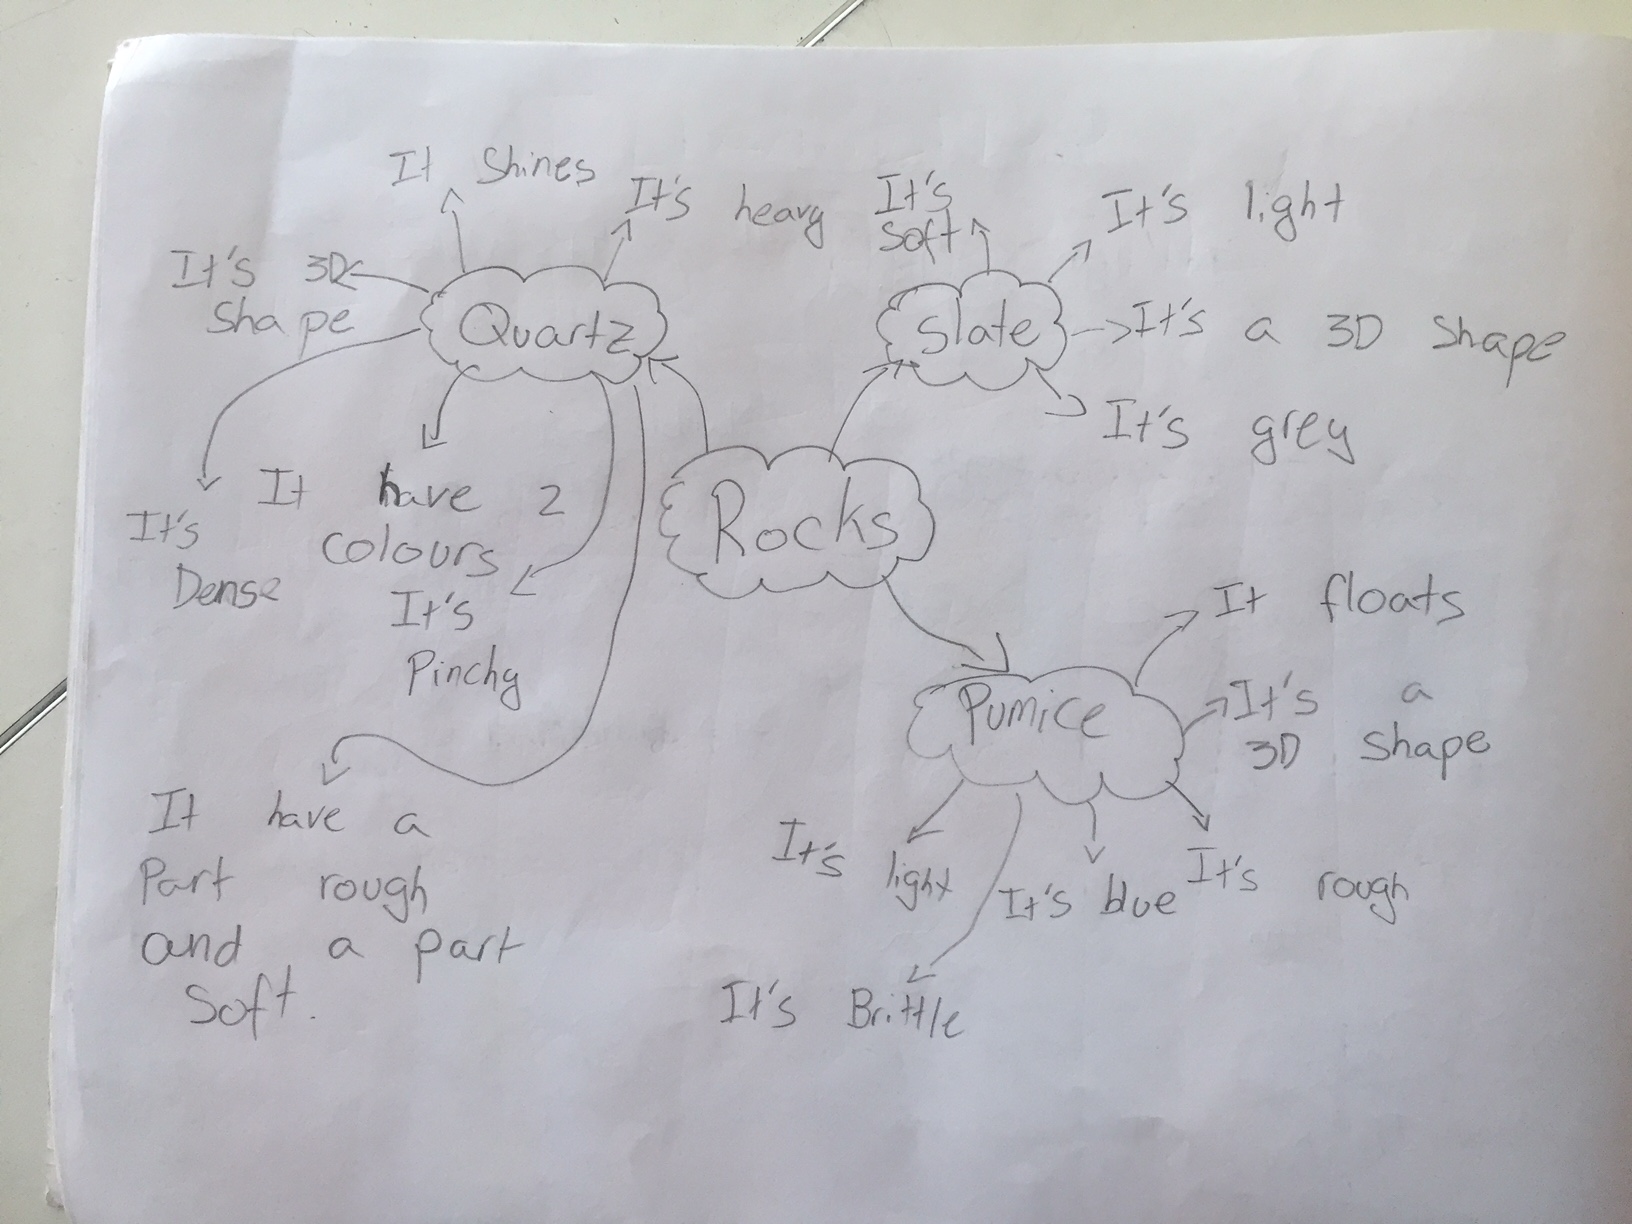 It Shines
It's heavy
It's 3D
shape
Quartz
It's
Dense
It have 2
colours
It's
Pinchy
It have a
Part rough
and a part
Soft.
Rocks
It's
soft
It's light
Slate
It's a 3D shape
It's grey
Pumice
It floats
It's a
3D shape
It's light
It's blue
It's rough
It's Brittle